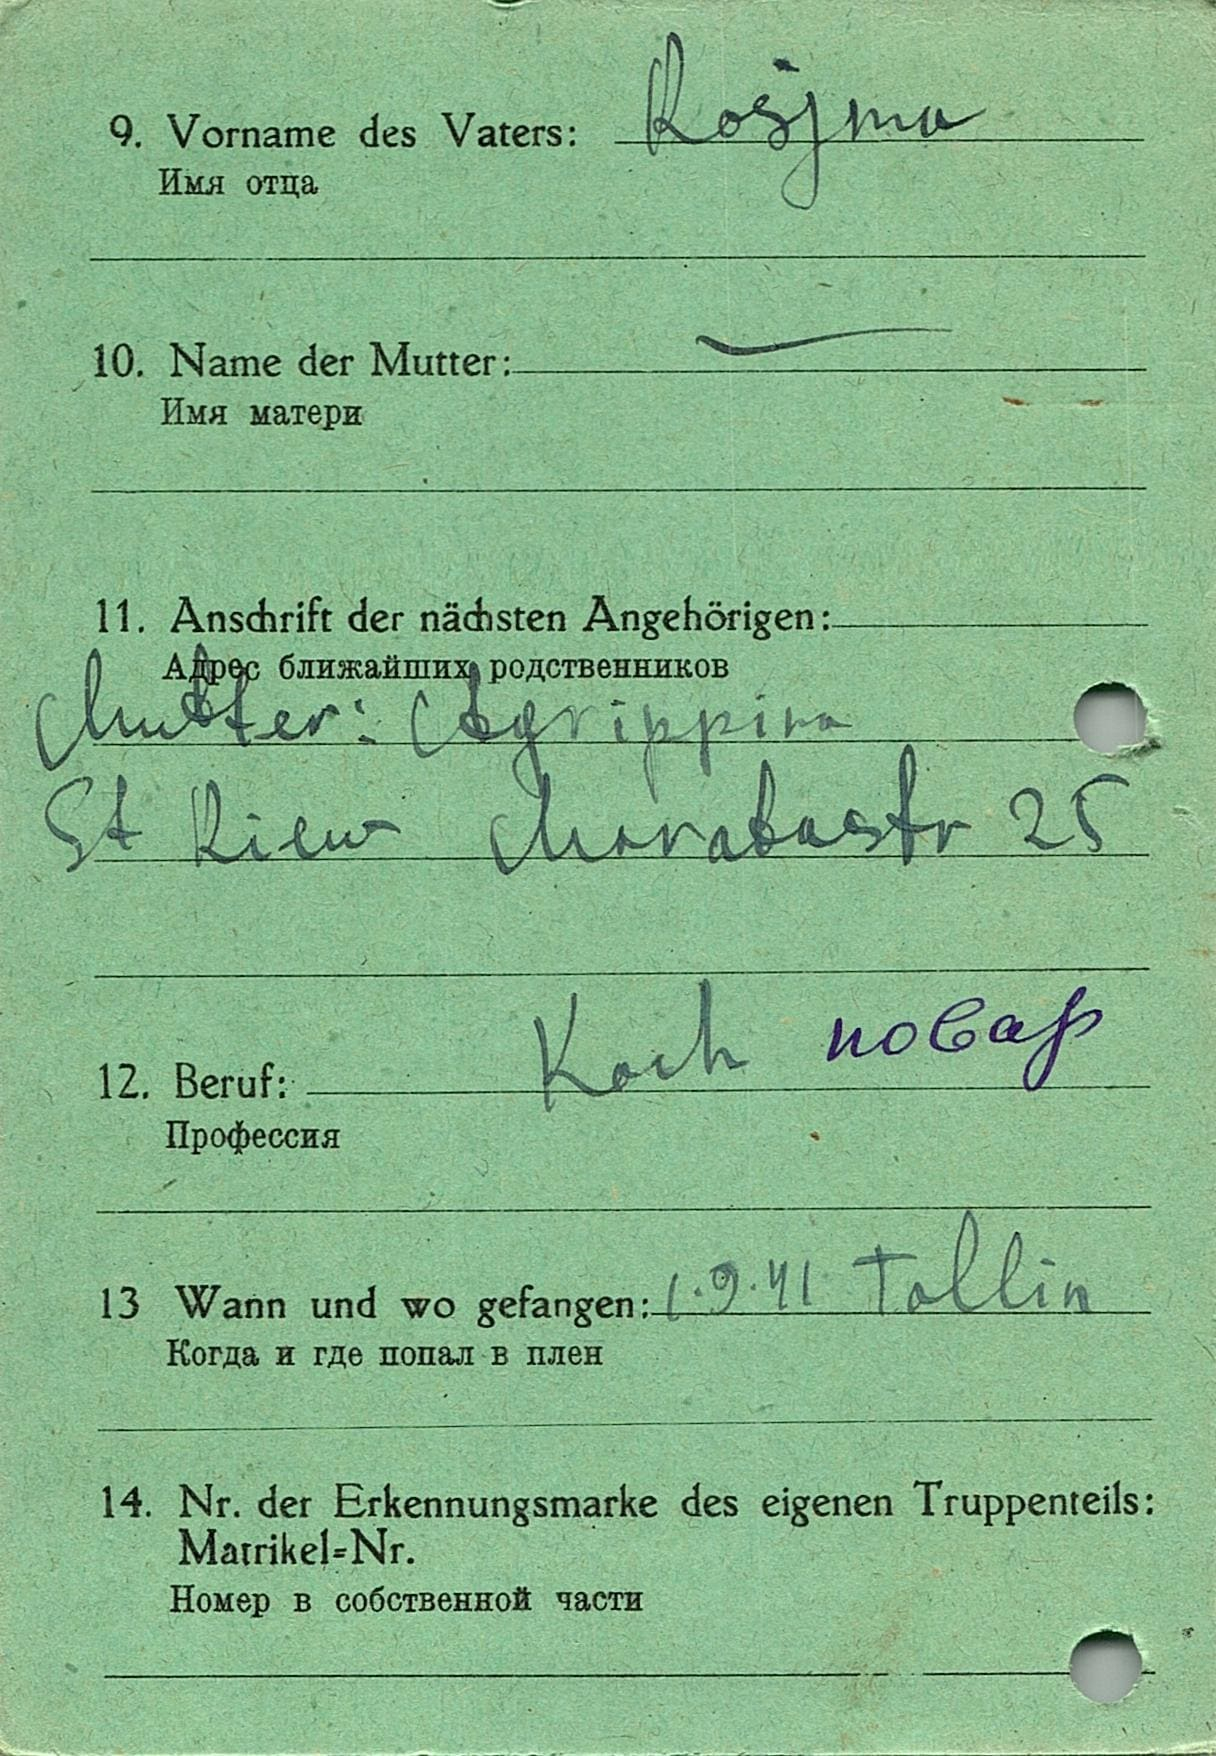 9. Vorname des Vaters: Kosjma
Имя отца
10. Name der Mutter: —
Имя матери
11. Anschrift der nächsten Angehörigen:
Адрес ближайших родственников
Mutter: Agrippina
St Kiew Maratastr 25
12. Beruf: Koch повар
Профессия
13 Wann und wo gefangen: 1.9.41 Tallin
Когда и где попал в плен
14. Nr. der Erkennungsmarke des eigenen Truppenteils:
Matrikel=Nr.
Номер в собственной части